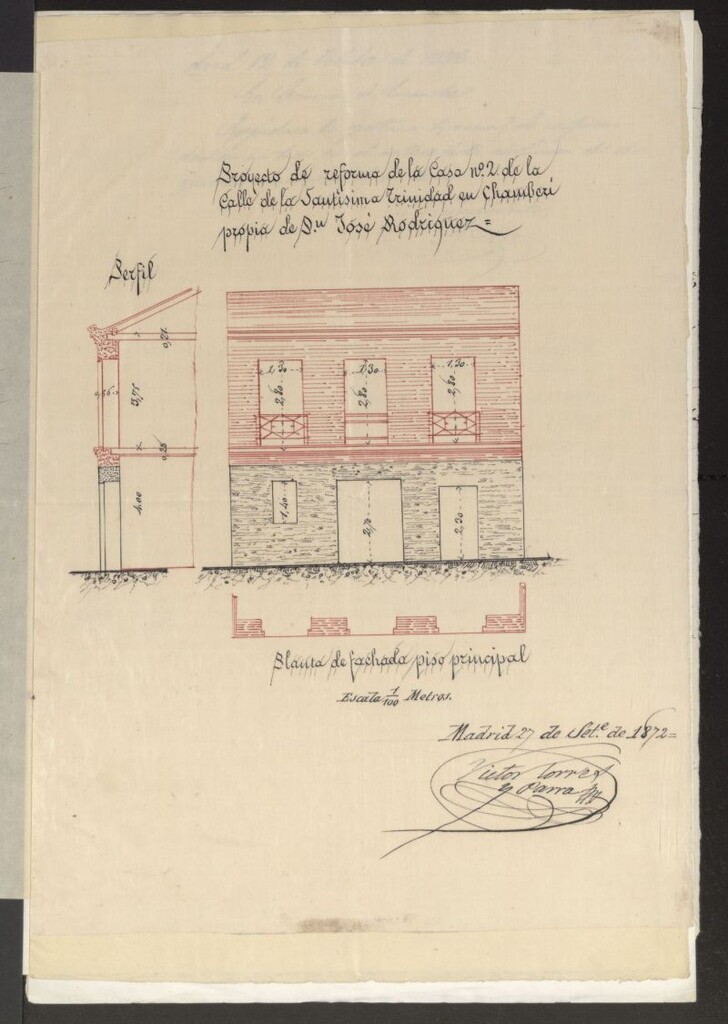 Proyecto de reforma de la Casa nº 2 de la
Calle de la Santisima Trinidad en Chamberi
propia de Dn José Rodriguez=
Perfil
0,21
1,30
1,30
1,30
0,56
3,75
2,80
2,80
2,80
0,28
4,00
1,40
2,70
2,30
Planta de fachada piso principal
Escala 1/100 Metros.
Madrid 27 de Set.e de 1872=
Victor Torre
y Parra